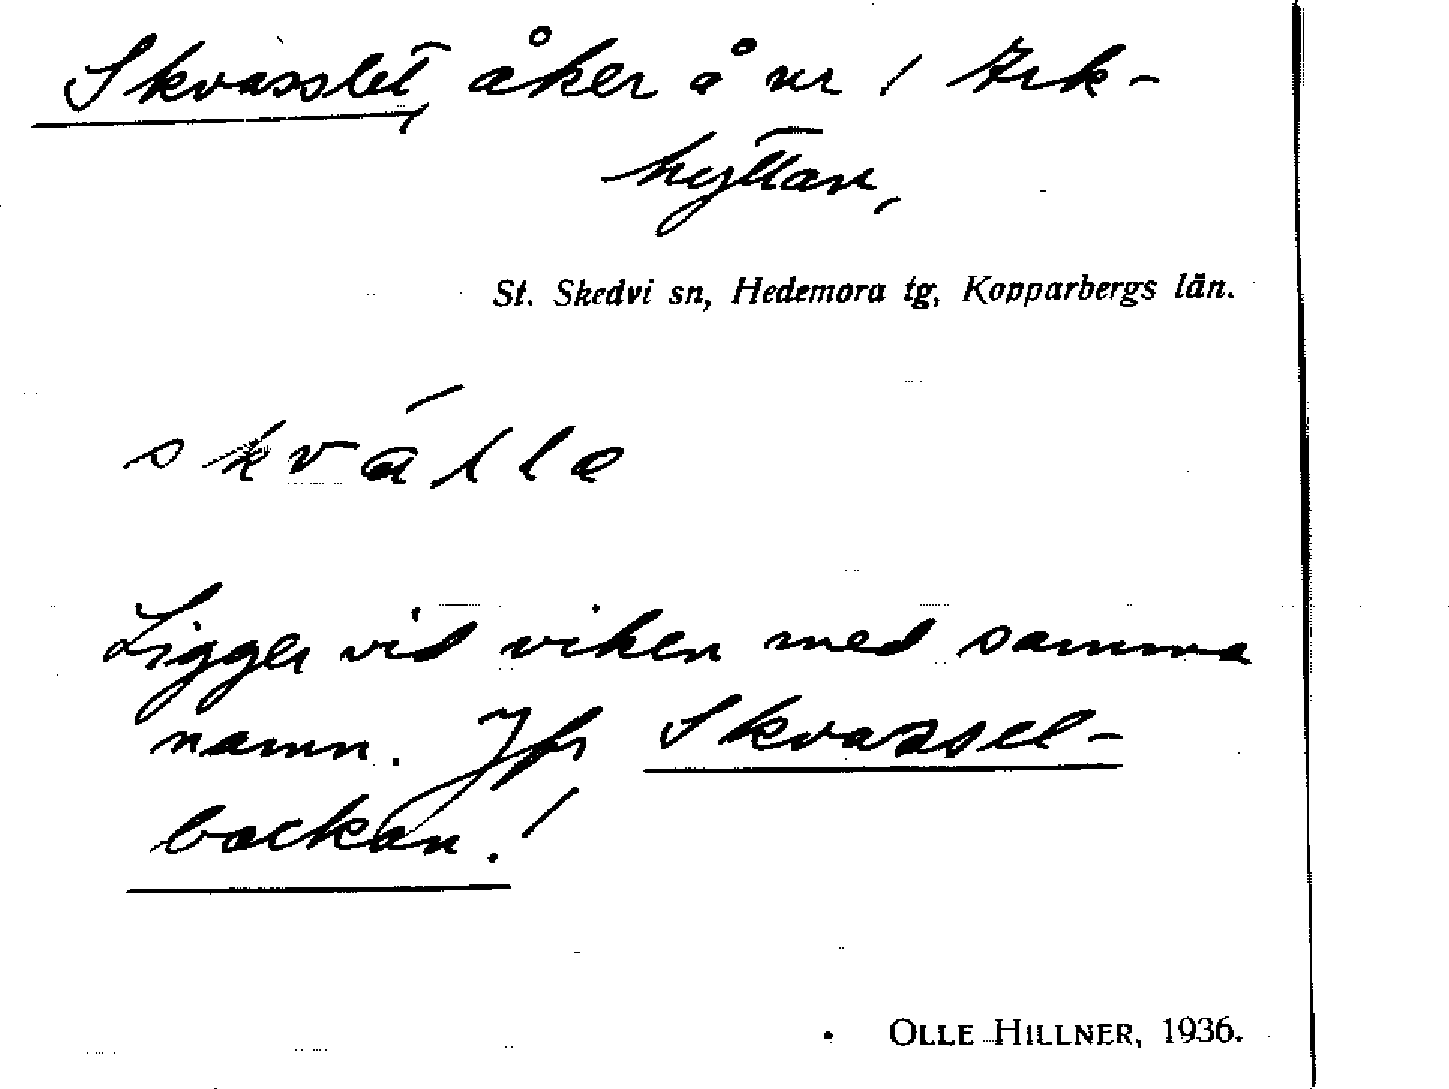 Skvasslet, åker å nr 1 Ark-
hyttan,
St. Skedvi sn, Hedemora tg, Kopparbergs län.
skválla
Ligger vid viken med samma
namn. Jfr Skvassel-
backan!
OLLE HILLNER, 1936.